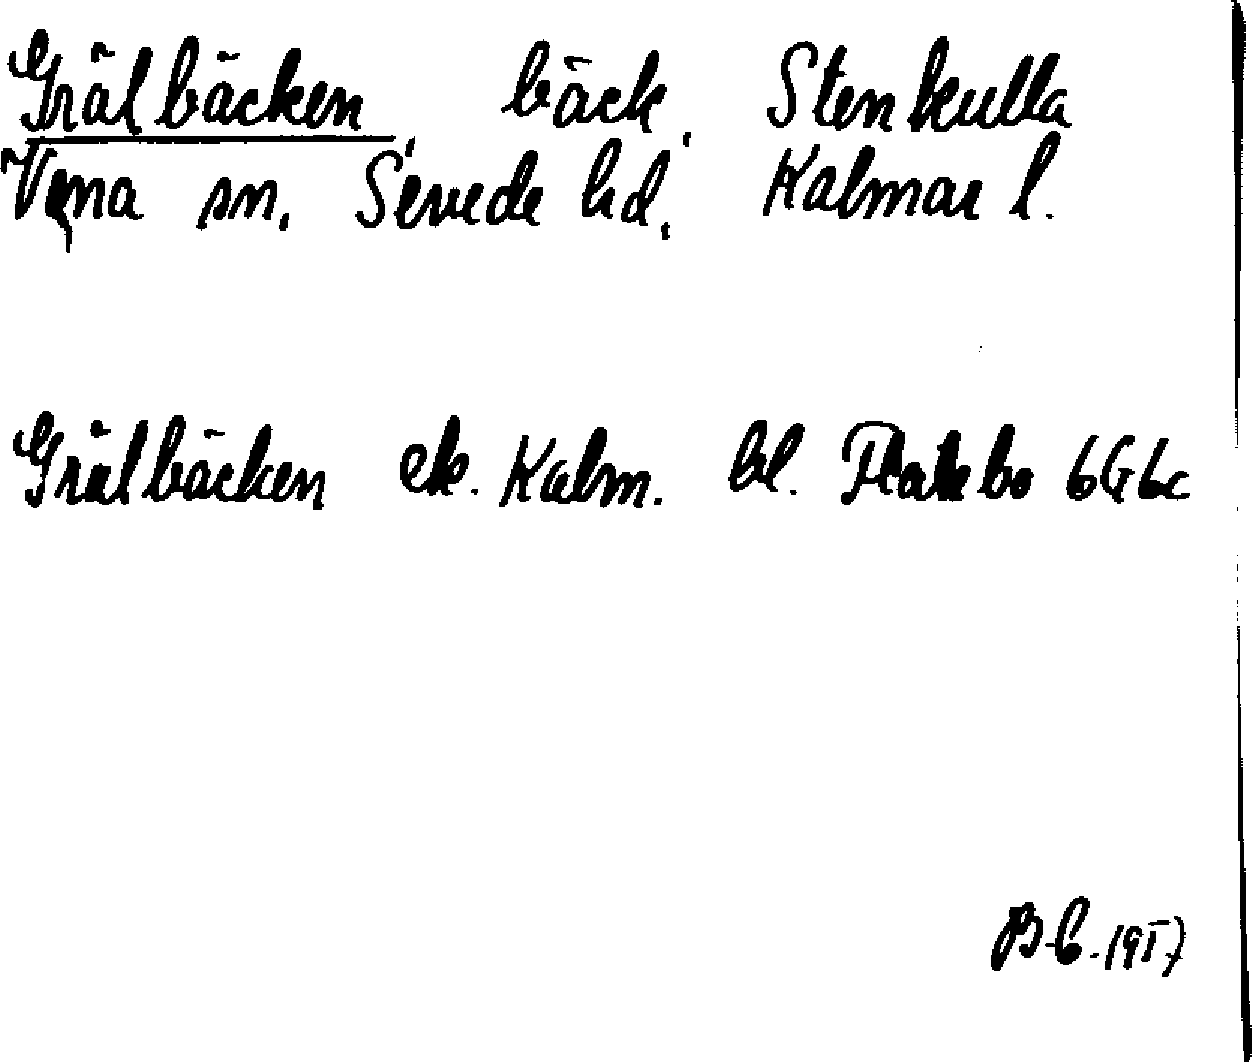 Grålbäcken bäck. Stenkulla
Vena sn. Sevede hd. Kalmar l.
Grålbäcken ek. Kalm. bl. Flatebo 6G6c
B-C. 1957